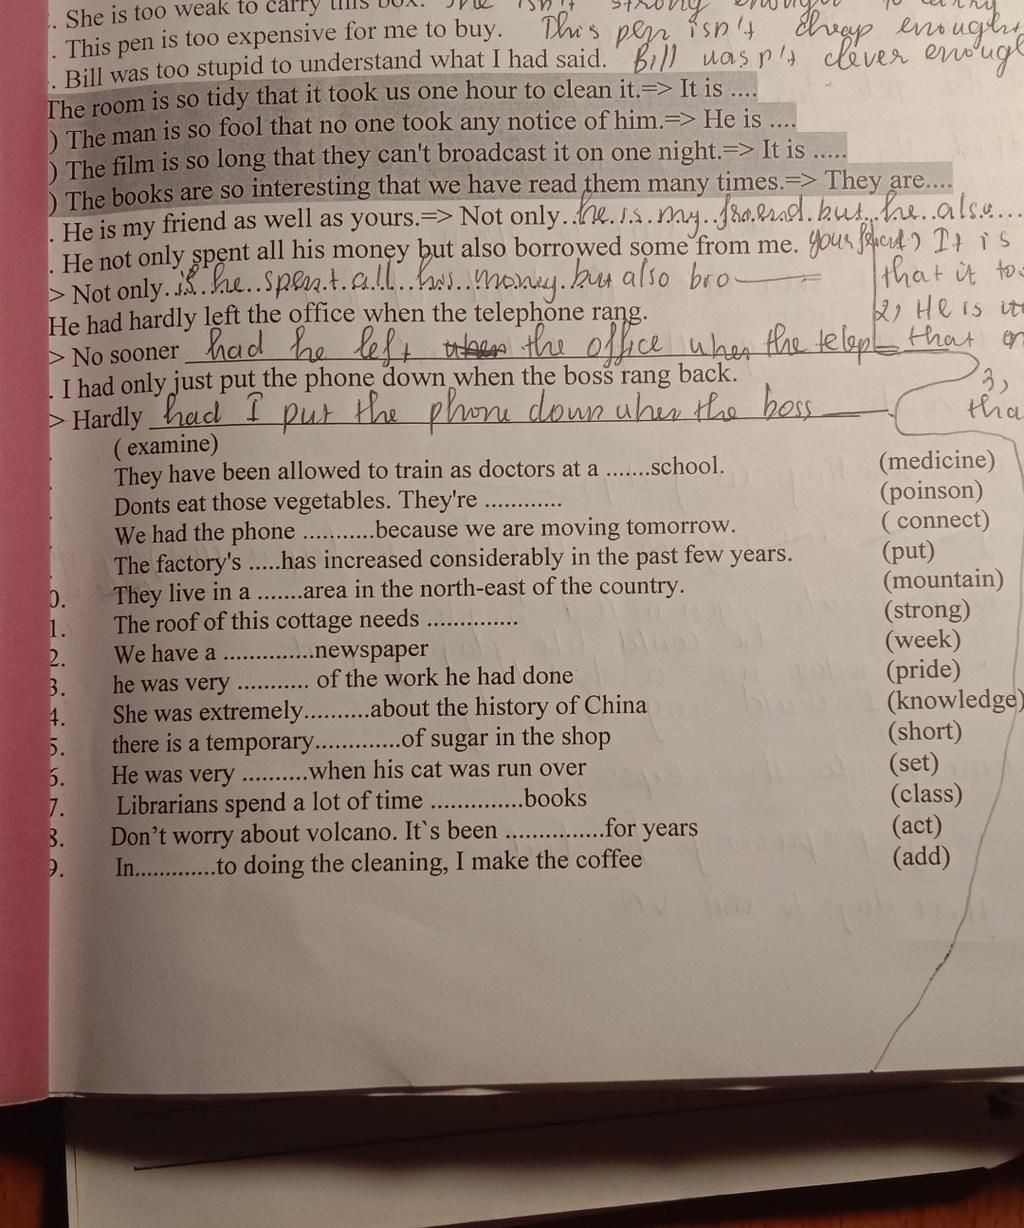 . She is too weak to carry this box. She isn't strong enough to carry
. This pen is too expensive for me to buy. This pen isn't cheap enough
. Bill was too stupid to understand what I had said. Bill wasn't clever enough
The room is so tidy that it took us one hour to clean it.=> It is ....
) The man is so fool that no one took any notice of him.=> He is ....
) The film is so long that they can't broadcast it on one night.=> It is .....
) The books are so interesting that we have read them many times.=> They are....
. He is my friend as well as yours.=> Not only..he is my friend but he also...
. He not only spent all his money but also borrowed some from me. your ) It is
> Not only.. he spent all his money but also bro that it too
He had hardly left the office when the telephone rang. 2, He is
> No sooner had he left the office when the telep that
. I had only just put the phone down when the boss rang back. 3,
> Hardly had I put the phone down when the boss tha
( examine)
They have been allowed to train as doctors at a .......school. (medicine)
Donts eat those vegetables. They're ............ (poinson)
We had the phone ..........because we are moving tomorrow. ( connect)
The factory's .....has increased considerably in the past few years. (put)
0. They live in a .......area in the north-east of the country. (mountain)
1. The roof of this cottage needs .............. (strong)
2. We have a ..............newspaper (week)
3. he was very ........... of the work he had done (pride)
4. She was extremely..........about the history of China (knowledge)
5. there is a temporary.............of sugar in the shop (short)
6. He was very ..........when his cat was run over (set)
7. Librarians spend a lot of time ..............books (class)
8. Don't worry about volcano. It`s been ...............for years (act)
9. In.............to doing the cleaning, I make the coffee (add)